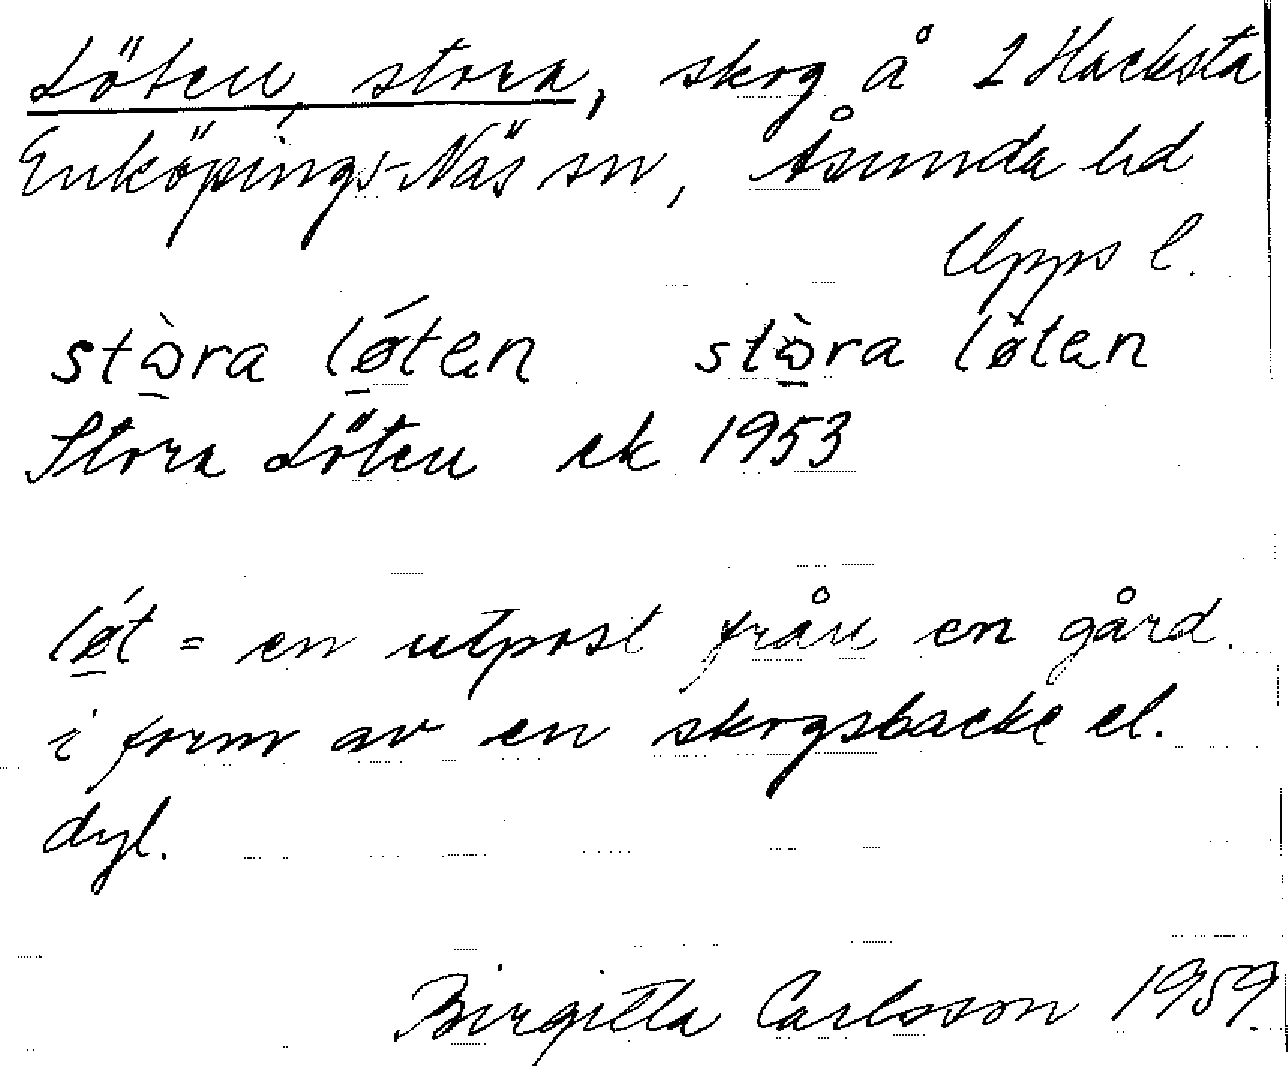 Löten, stora, skog å 2 Hacksta
Enköpings-Näs sn, Åsunda hd
Upps l.
stὼ̠ra lǿ̠ten stὼ̠ra lø̀ten
Stora Löten ek 1953
lǿ̠t = en utpost från en gård
i form av en skogsbacke el.
dyl.
Birgitta Carlsson 1959